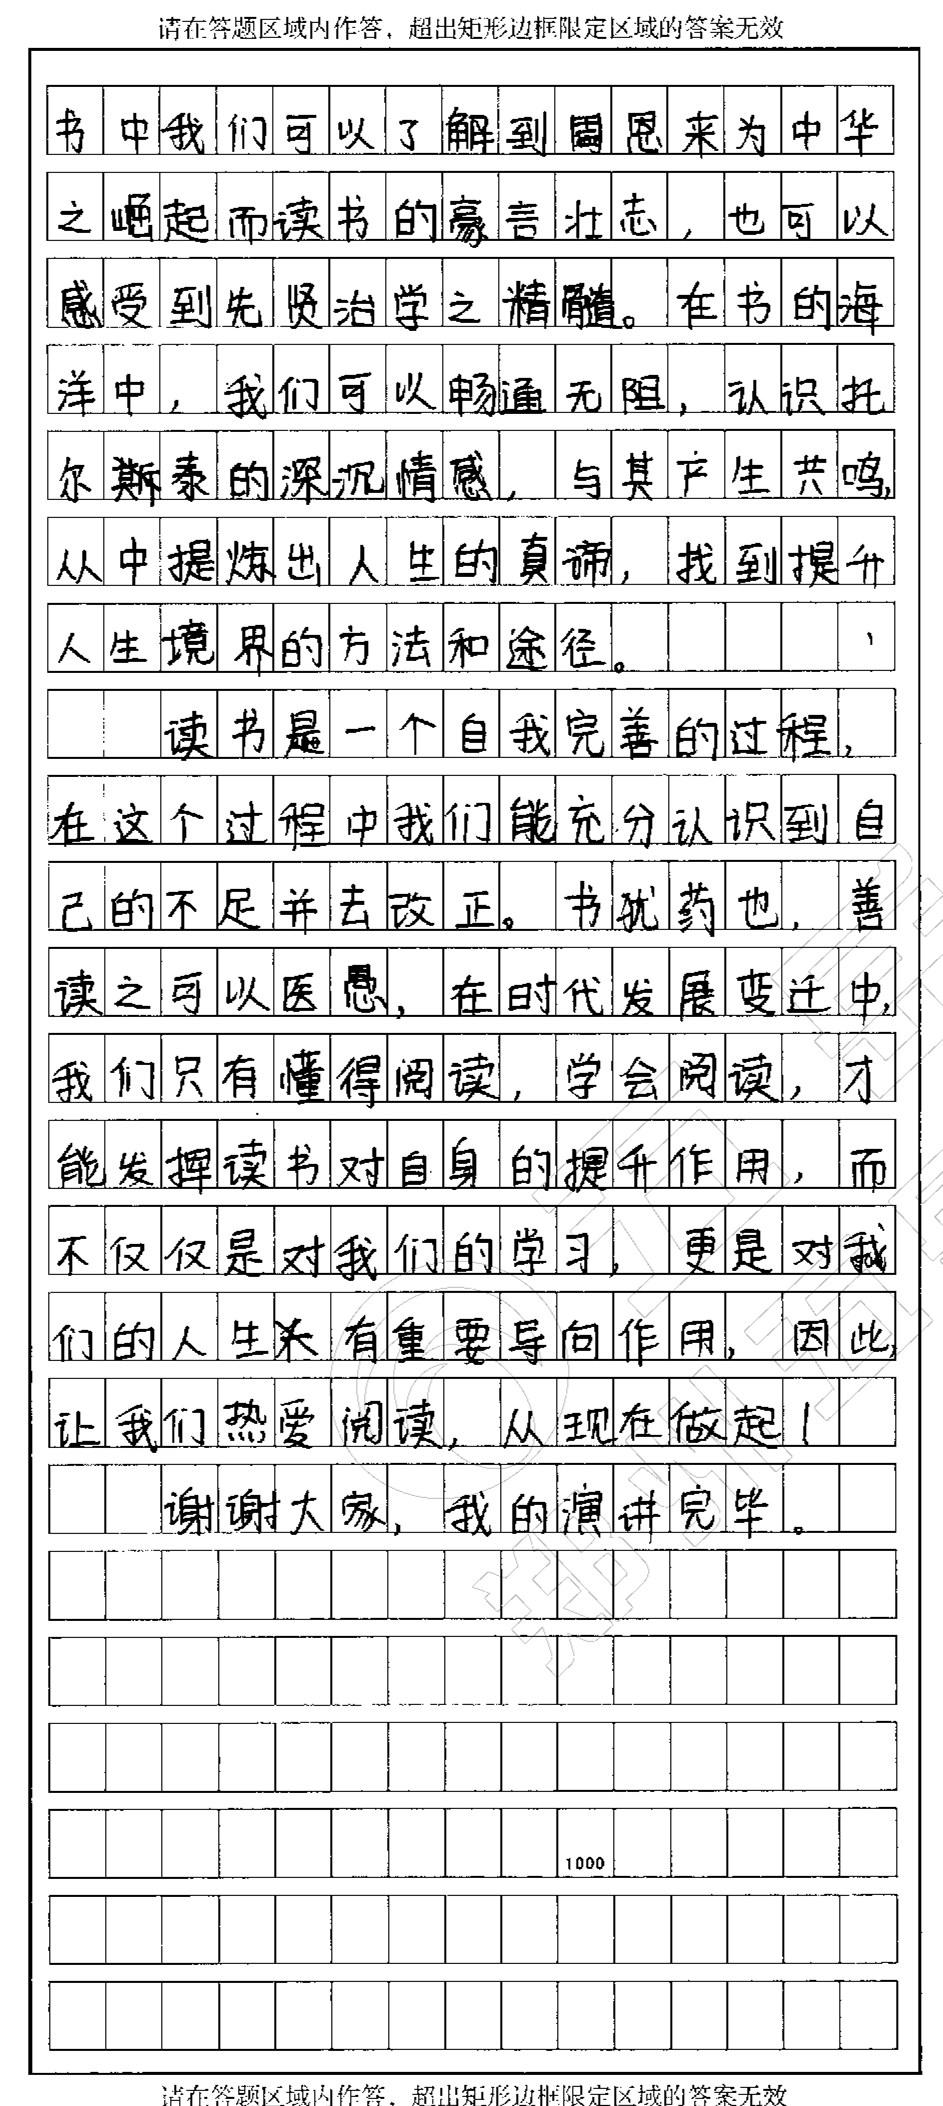 请在答题区域内作答，超出矩形边框限定区域的答案无效
书中我们可以了解到周恩来为中华
之崛起而读书的豪言壮志，也可以
感受到先贤治学之精髓。在书的海
洋中，我们可以畅通无阻，认识托
尔斯泰的深沉情感，与其产生共鸣，
从中提炼出人生的真谛，找到提升
人生境界的方法和途径。
读书是一个自我完善的过程，
在这个过程中我们能充分认识到自
己的不足并去改正。书犹药也，善
读之可以医愚，在时代发展变迁中，
我们只有懂得阅读，学会阅读，才
能发挥读书对自身的提升作用，而
不仅仅是对我们的学习，更是对我
们的人生有重要导向作用，因此，
让我们热爱阅读，从现在做起！
谢谢大家，我的演讲完毕。
1000
请在答题区域内作答，超出矩形边框限定区域的答案无效